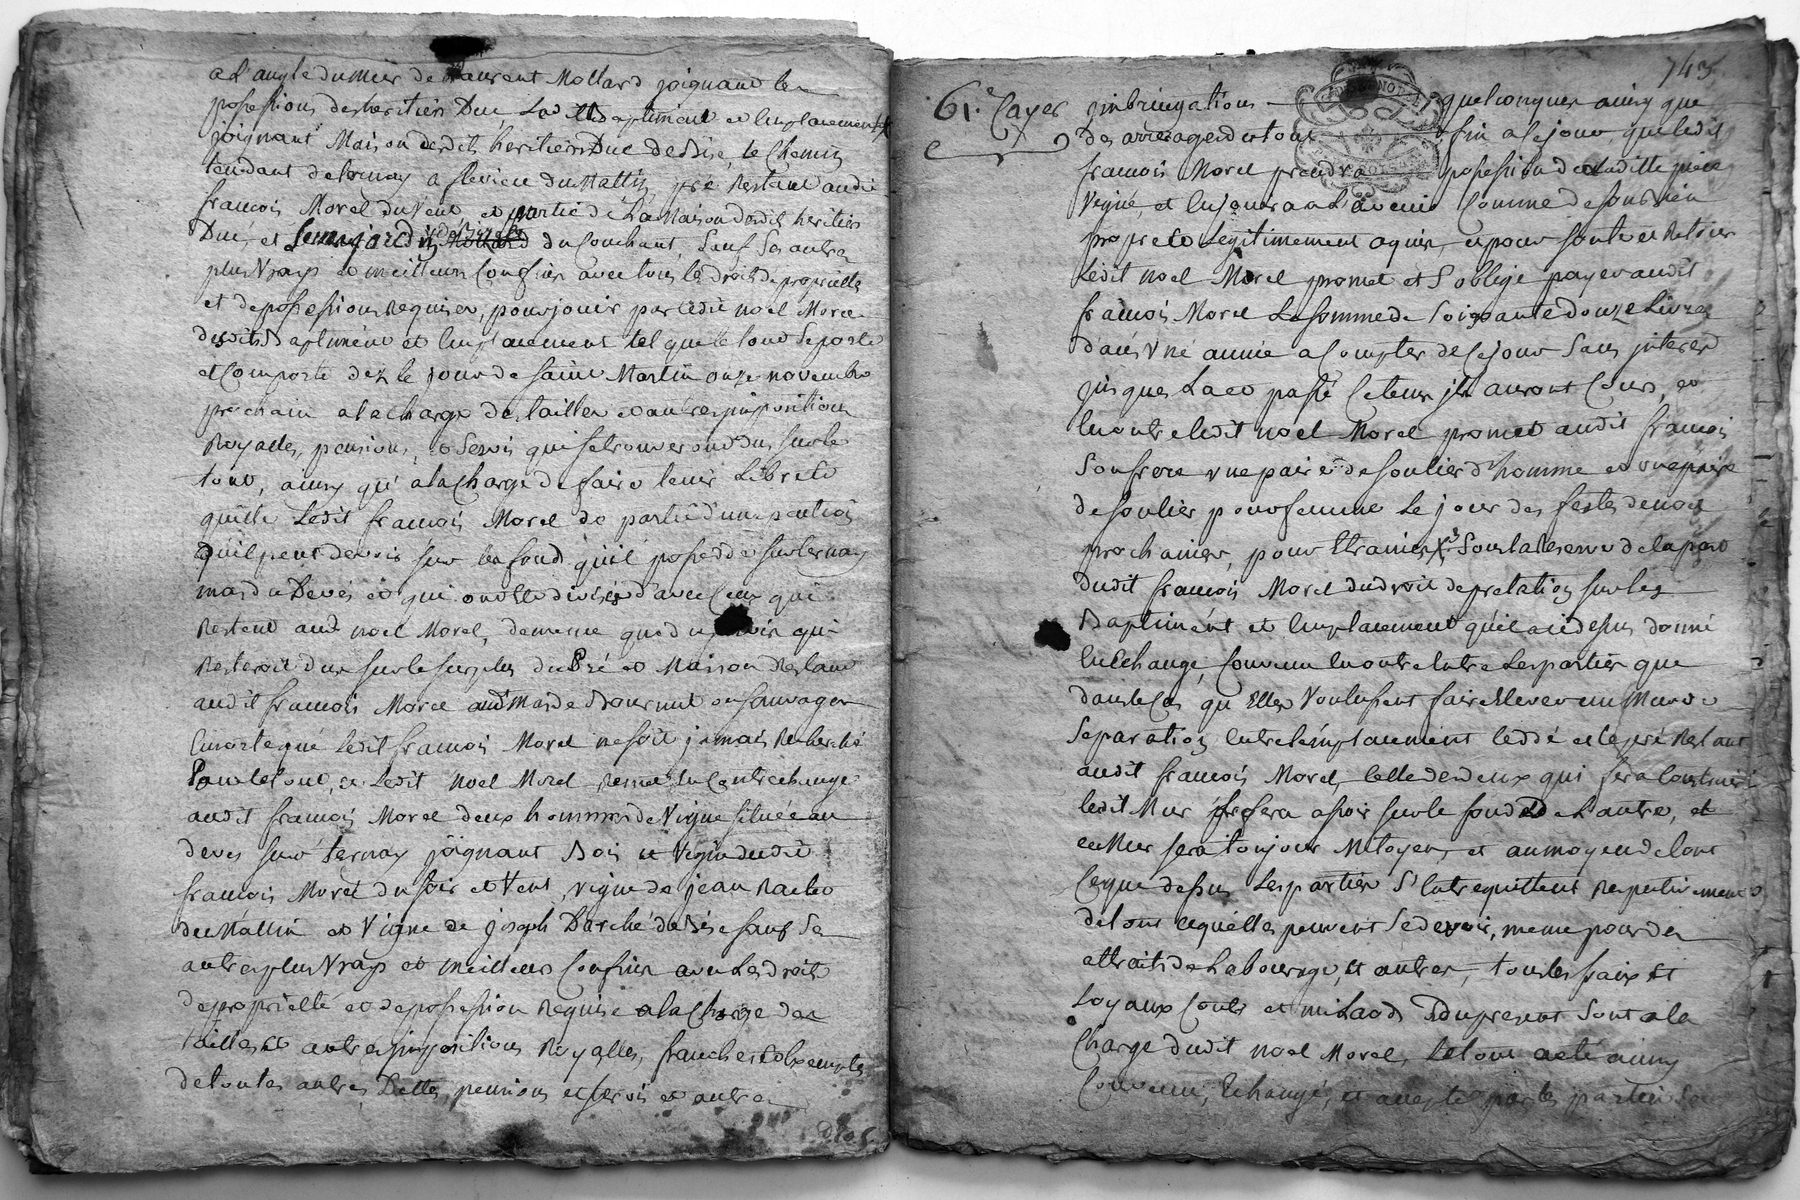 a L'angle du mur de Laurent Mollard joignant les
possessions des heritiers Duc Lesdits baptiment et Emplacement
joignant Maison desdits heritiers Duc de bise, le Chemin
tendant de ternay a flevieu du Mattin, pré Restant audit
francois Morel du Vent, et partie de La Maison desdit heritiers
Duc, et du Couchant, Sauf Ses autres
plus Vrays et meilleurs Confins avec tous les droits de proprietté
et de possession Requises, pour jouir par Ledit noel Morel
desdits Baptiment et Emplacement tel que le tout Se porte
et Comporte dez le jour de saint Martin onze novembre
prochain a la charge des tailles et autres impositions
Royalles, pensions, et Servis qui se trouveront dus sur le
tout, ainsy qu'a la Charge de faire tenir Libre et
quitte Ledit francois Morel de partie d'une pention
qu'il peut devoir sur les fond qu'il possede sur ternay
mas du Devés et qui ont été divisés d'avec Ceux qui
Restent aud noel Morel, de meme que du servis qui
Resteroit dus sur le surplus du Pré et Maison Restant
audit francois Morel aud Mas de ou sauvages
En sorte que Ledit francois Morel ne soit jamais Recherché
Pour le tout, et Ledit Noel Morel Remet En Contrechange
audit francois Morel deux hommes de Vigne située au
deves sur ternay joignant Bois et Vigne dudit
francois Morel du soir et Vent, vigne de jean
du Mattin et Vigne de joseph Darché de Bise sauf Ses
autres plus Vrays et meilleurs Confins avec Les droits
de proprietté et de possession Requise a la Charge des
tailles et autres impositions Royalles, franches et exemptes
de toutes autres Dettes, pensions et servis et autres
743
61.e Cayer
imbrigations quelconques ainsy que
des arrerages du tout fin a Ce jour, que ledit
francois Morel prendra possession de laditte piece
Vigne, et En jouira a L'avenir Comme de son bien
propre et Legitimement aquis, et pour soute et Retour
Ledit noel Morel promet et S'obblige payer audit
francois Morel La somme de Soixante douze Livres
dans Une année a Compter de Ce jour Sans interets
jusques La et passé Ce tems ils auront Cours, et
En outre ledit noel Morel promet audit francois
Son frere une paire de soulier d'homme et une paire
de soulier pour femme Le jour des festes de noel
prochaines, pour Etraines Sous la Reserve de la part
dudit francois Morel du droit de prelation sur les
Baptiment et Emplacement qu'il a cidessus donné
En Echange, Convenu En outre Entre Les parties que
dans le Cas qu'Elles Voulussent faire Elever un Mur de
Separation Entre l'emplacement Ceddé et le pré Restant
audit francois Morel, Celle des deux qui fera Construire
ledit Mur fera assoir sur le fond de L'autre, et
ce Mur sera toujour Mitoyen, et au moyen de tout
Ce que dessus Les parties S'Entrequittent Respectivement
de tout ce qu'elles peuvent Se devoir, meme pour des
attraits de Labourage, et autres, tous les fraix et
Loyaux Couts et miLaods du present Sont a la
Charge dudit noel Morel, Le tout a été ainsy
Convenu, Echangé, et accepté par les parties Sous